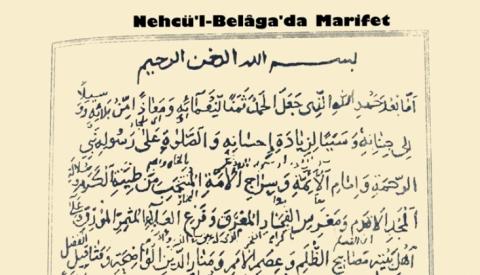 Nehcü'l-Belâga'da Marifet
بسم الله الرحمن الرحيم
أَمَّا بَعْدَ حَمْدِ اللهِ الَّذِي جَعَلَ الْحَمْدَ ثَمَنًا لِنَعْمَائِهِ وَمَعَاذًا مِنْ بَلَائِهِ وَسَبِيلًا
إِلَى جِنَانِهِ وَسَبَبًا لِزِيَادَةِ إِحْسَانِهِ وَالصَّلَوةُ عَلَى رَسُولِهِ نَبِيِّ
الرَّحْمَةِ وَإِمَامِ الْأَئِمَّةِ وَسِرَاجِ الْأُمَّةِ الْمُنْتَخَبِ مِنْ طِينَةِ الْكَرَمِ وَسُلَالَةِ
الْمَجْدِ الْأَقْدَمِ وَمَغْرِسِ الْفَخَارِ الْمُعْرِقِ وَفَرْعِ الْعَلَاءِ الْمُثْمِرِ الْمُورِقِ وَعَلَى
أَهْلِ بَيْتِهِ مَصَابِيحِ الظُّلَمِ وَعِصَمِ الْأُمَمِ وَمَنَارِ الدِّينِ الْوَاضِحَةِ وَمَثَاقِيلِ الْفَضْلِ